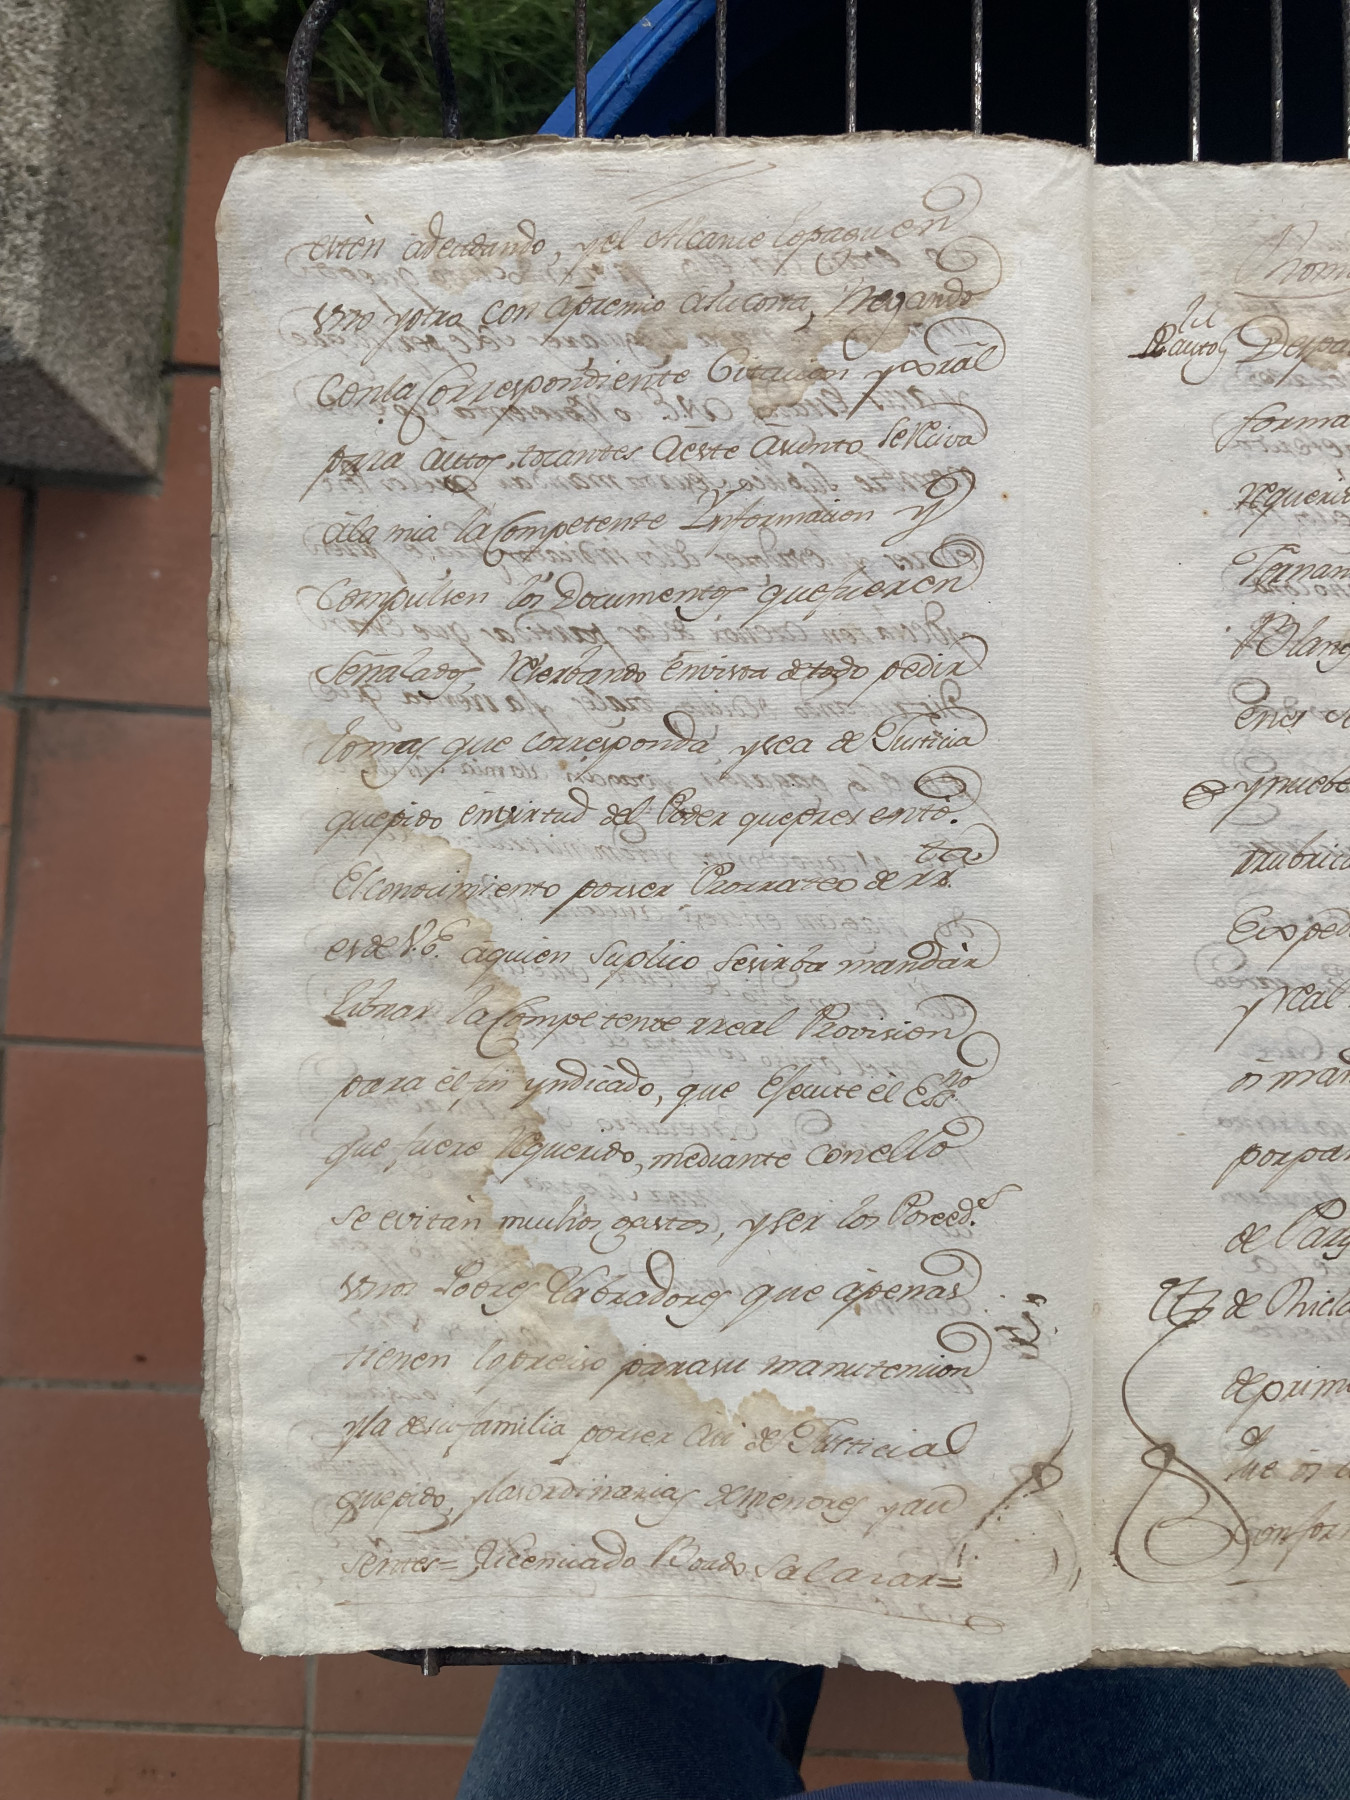 estèn adeudando, y el Alcanze lo paguen
Uno y otro con àpremio asu costa, Pregando
Con la Correspondiente Citacion y xral
para àutos tocantes àeste àsunto se reciva
àla mia la Competente Ynformacion y
Compulsen los Documentos que fueren
Señalados, reserbando ênvista de todo pedir
lo mas que corresponda, y sea de Justicia
que pido ênvirtud del Poder que presento.
El conocimiento por ser Prorrateo de rta.
es de V.E. àquien suplico se sirba mandàr
librar la Competente rreal Provision
para êl fin yndicado, que Ejecute el Essno
que fuere requerido, mediante con ello
se evitàn muchos gastos, y ser los Poseeds.
Unos Pobres Labradores que àpenas
tienen lo preciso para su manutencion
y la de su familia por ser àsi de Justicia
que pido, y las ordinarias de menores y au
sentes = Licenciado Boado Salazar =
rra autos
Ternan
forma
requeri
ênel
y nuebe
rrubrica
Exped
y real
de Par
de prim
Confor